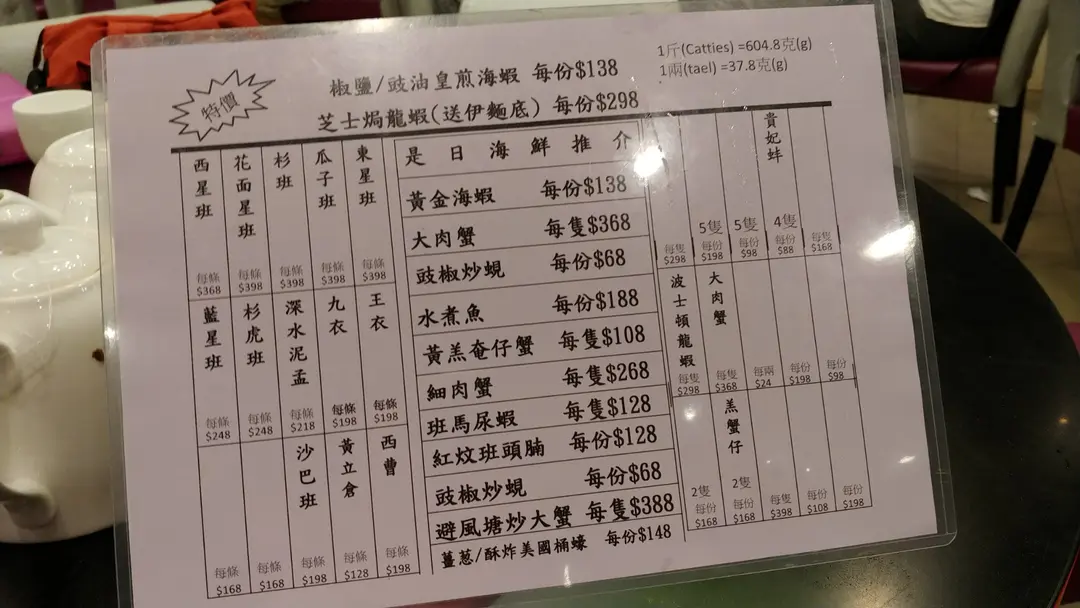 特價
椒鹽/豉油皇煎海蝦 每份$138
芝士焗龍蝦(送伊麵底) 每份$298
1斤(Catties) =604.8克(g)
1兩(tael) =37.8克(g)
西星班 每條 $368
花面星班 每條 $398
杉班 每條 $398
瓜子班 每條 $398
東星班 每條 $398
藍星班 每條 $248
杉虎班 每條 $248
深水泥孟 每條 $218
九衣 每條 $198
王衣 每條 $198
每條 $168
每條 $168
沙巴班 每條 $198
黃立倉 每條 $128
西曹 每條 $198
是日海鮮推介
黃金海蝦 每份$138
大肉蟹 每隻$368
豉椒炒蜆 每份$68
水煮魚 每份$188
黃羔奄仔蟹 每隻$108
細肉蟹 每隻$268
班馬尿蝦 每隻$128
紅炆班頭腩 每份$128
豉椒炒蜆 每份$68
避風塘炒大蟹 每隻$388
薑葱/酥炸美國桶蠔 每份$148
每隻 $298
5隻 每份 $198
5隻 每份 $98
貴妃蚌 4隻 每份 $88
每隻 $168
波士頓龍蝦 每隻 $298
大肉蟹 每隻 $368
每兩 $24
每份 $198
每份 $98
2隻 每份 $168
羔蟹仔 2隻 每份 $168
每隻 $398
每份 $108
每份 $198